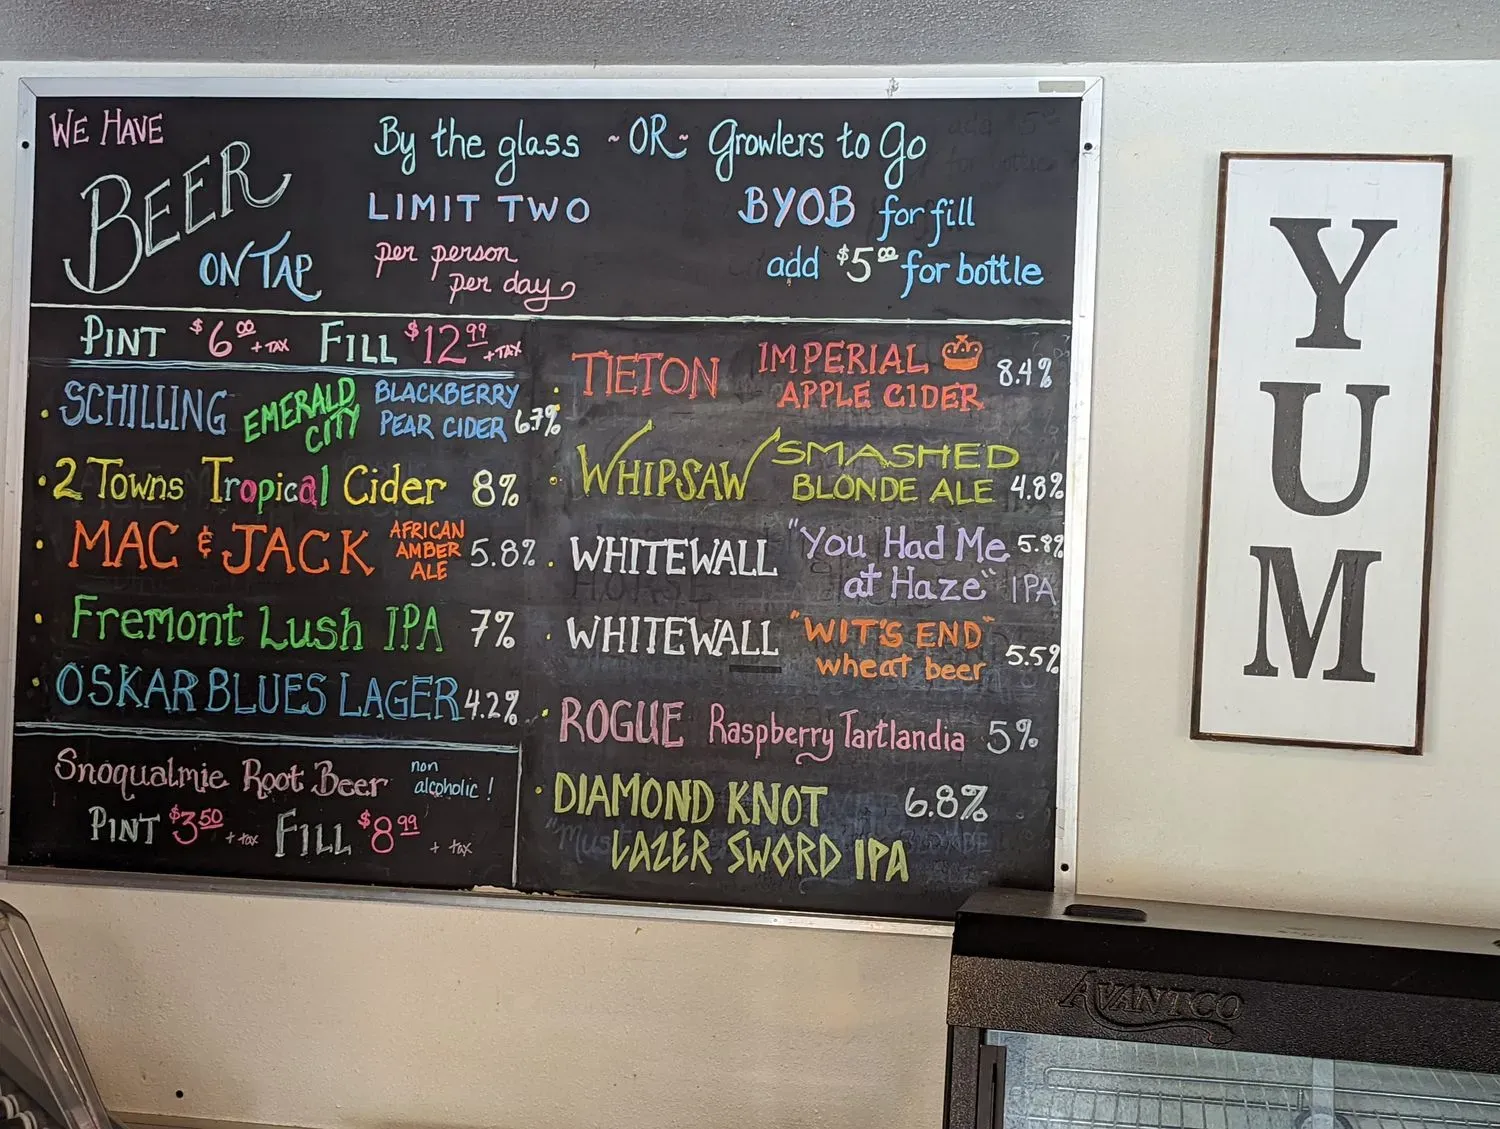 WE HAVE
BEER
ON TAP
By the glass ~ OR ~ Growlers to Go
LIMIT TWO
per person
per day
BYOB for fill
add $5.00 for bottle
PINT $6.00 + TAX FILL $12.99 + TAX
SCHILLING EMERALD CITY BLACKBERRY PEAR CIDER 6.7%
2 Towns Tropical Cider 8%
MAC & JACK AFRICAN AMBER ALE 5.8%
Fremont Lush IPA 7%
OSKAR BLUES LAGER 4.2%
Snoqualmie Root Beer non alcoholic!
PINT $3.50 + tax FILL $8.99 + tax
TIETON IMPERIAL APPLE CIDER 8.4%
WHIPSAW SMASHED BLONDE ALE 4.8%
WHITEWALL "You Had Me at Haze" IPA 5.8%
WHITEWALL "WIT'S END" wheat beer 5.5%
ROGUE Raspberry Tartlandia 5%
DIAMOND KNOT 6.8%
LAZER SWORD IPA
YUM
AVANTCO